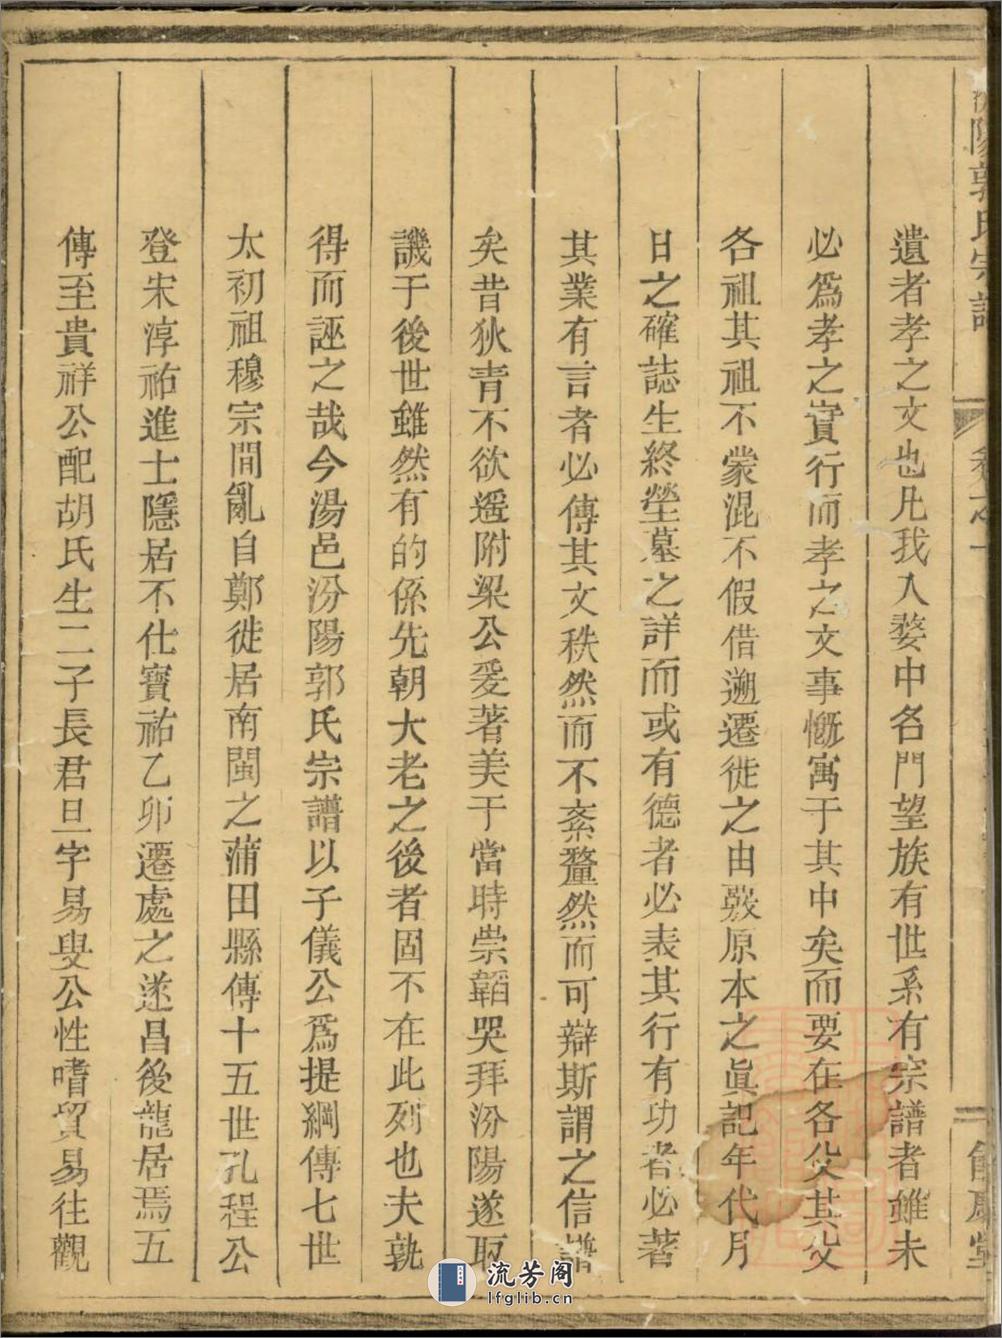 陽郭氏宗譜
卷之一
遺者孝之文也凡我入婺中各門望族有世系有宗譜者雖未
必爲孝之實行而孝之文事慨寓于其中矣而要在各父其父
各祖其祖不蒙混不假借遡遷徙之由發原本之眞記年代月
日之確誌生終塋墓之詳而或有德者必表其行有功者必著
其業有言者必傳其文秩然而不紊釐然而可辯斯謂之信譜
矣昔狄青不欲遥附梁公爰著美于當時崇韜哭拜汾陽遂取
譏于後世雖然有的係先朝大老之後者固不在此列也夫孰
得而誣之哉今湯邑汾陽郭氏宗譜以子儀公爲提綱傳七世
太初祖穆宗間亂自鄭徙居南閩之蒲田縣傳十五世孔程公
登宋淳祐進士隱居不仕寶祐乙卯遷處之遂昌後龍居焉五
傳至貴祥公配胡氏生二子長君旦字易叟公性嗜貿易往觀
流芳阁
lfglib.cn